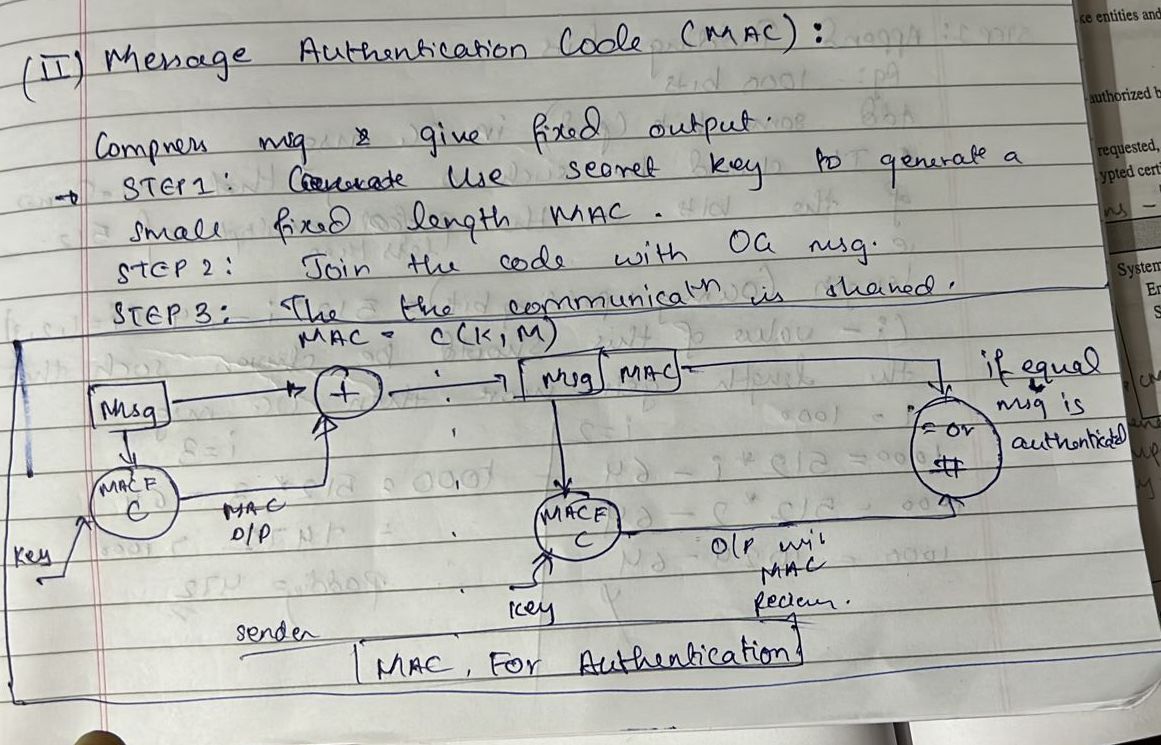 (II) Message Authentication Code (MAC):
Compress msg & give fixed output.
→ STEP 1: Use secret key to generate a
small fixed length MAC.
STEP 2: Join the code with OG msg.
STEP 3: The the communicatn is shared.
MAC = C(K, M)
Msg
+
Msg MAC
if equal
msg is
authenticated
= or
≠
MACF
C
MAC
O/P
Key
MACF
C
Key
O/P will
MAC
sender
MAC, For Authentication
ke entities and
authorized b
requested,
ypted cert
ns -
System
En
S